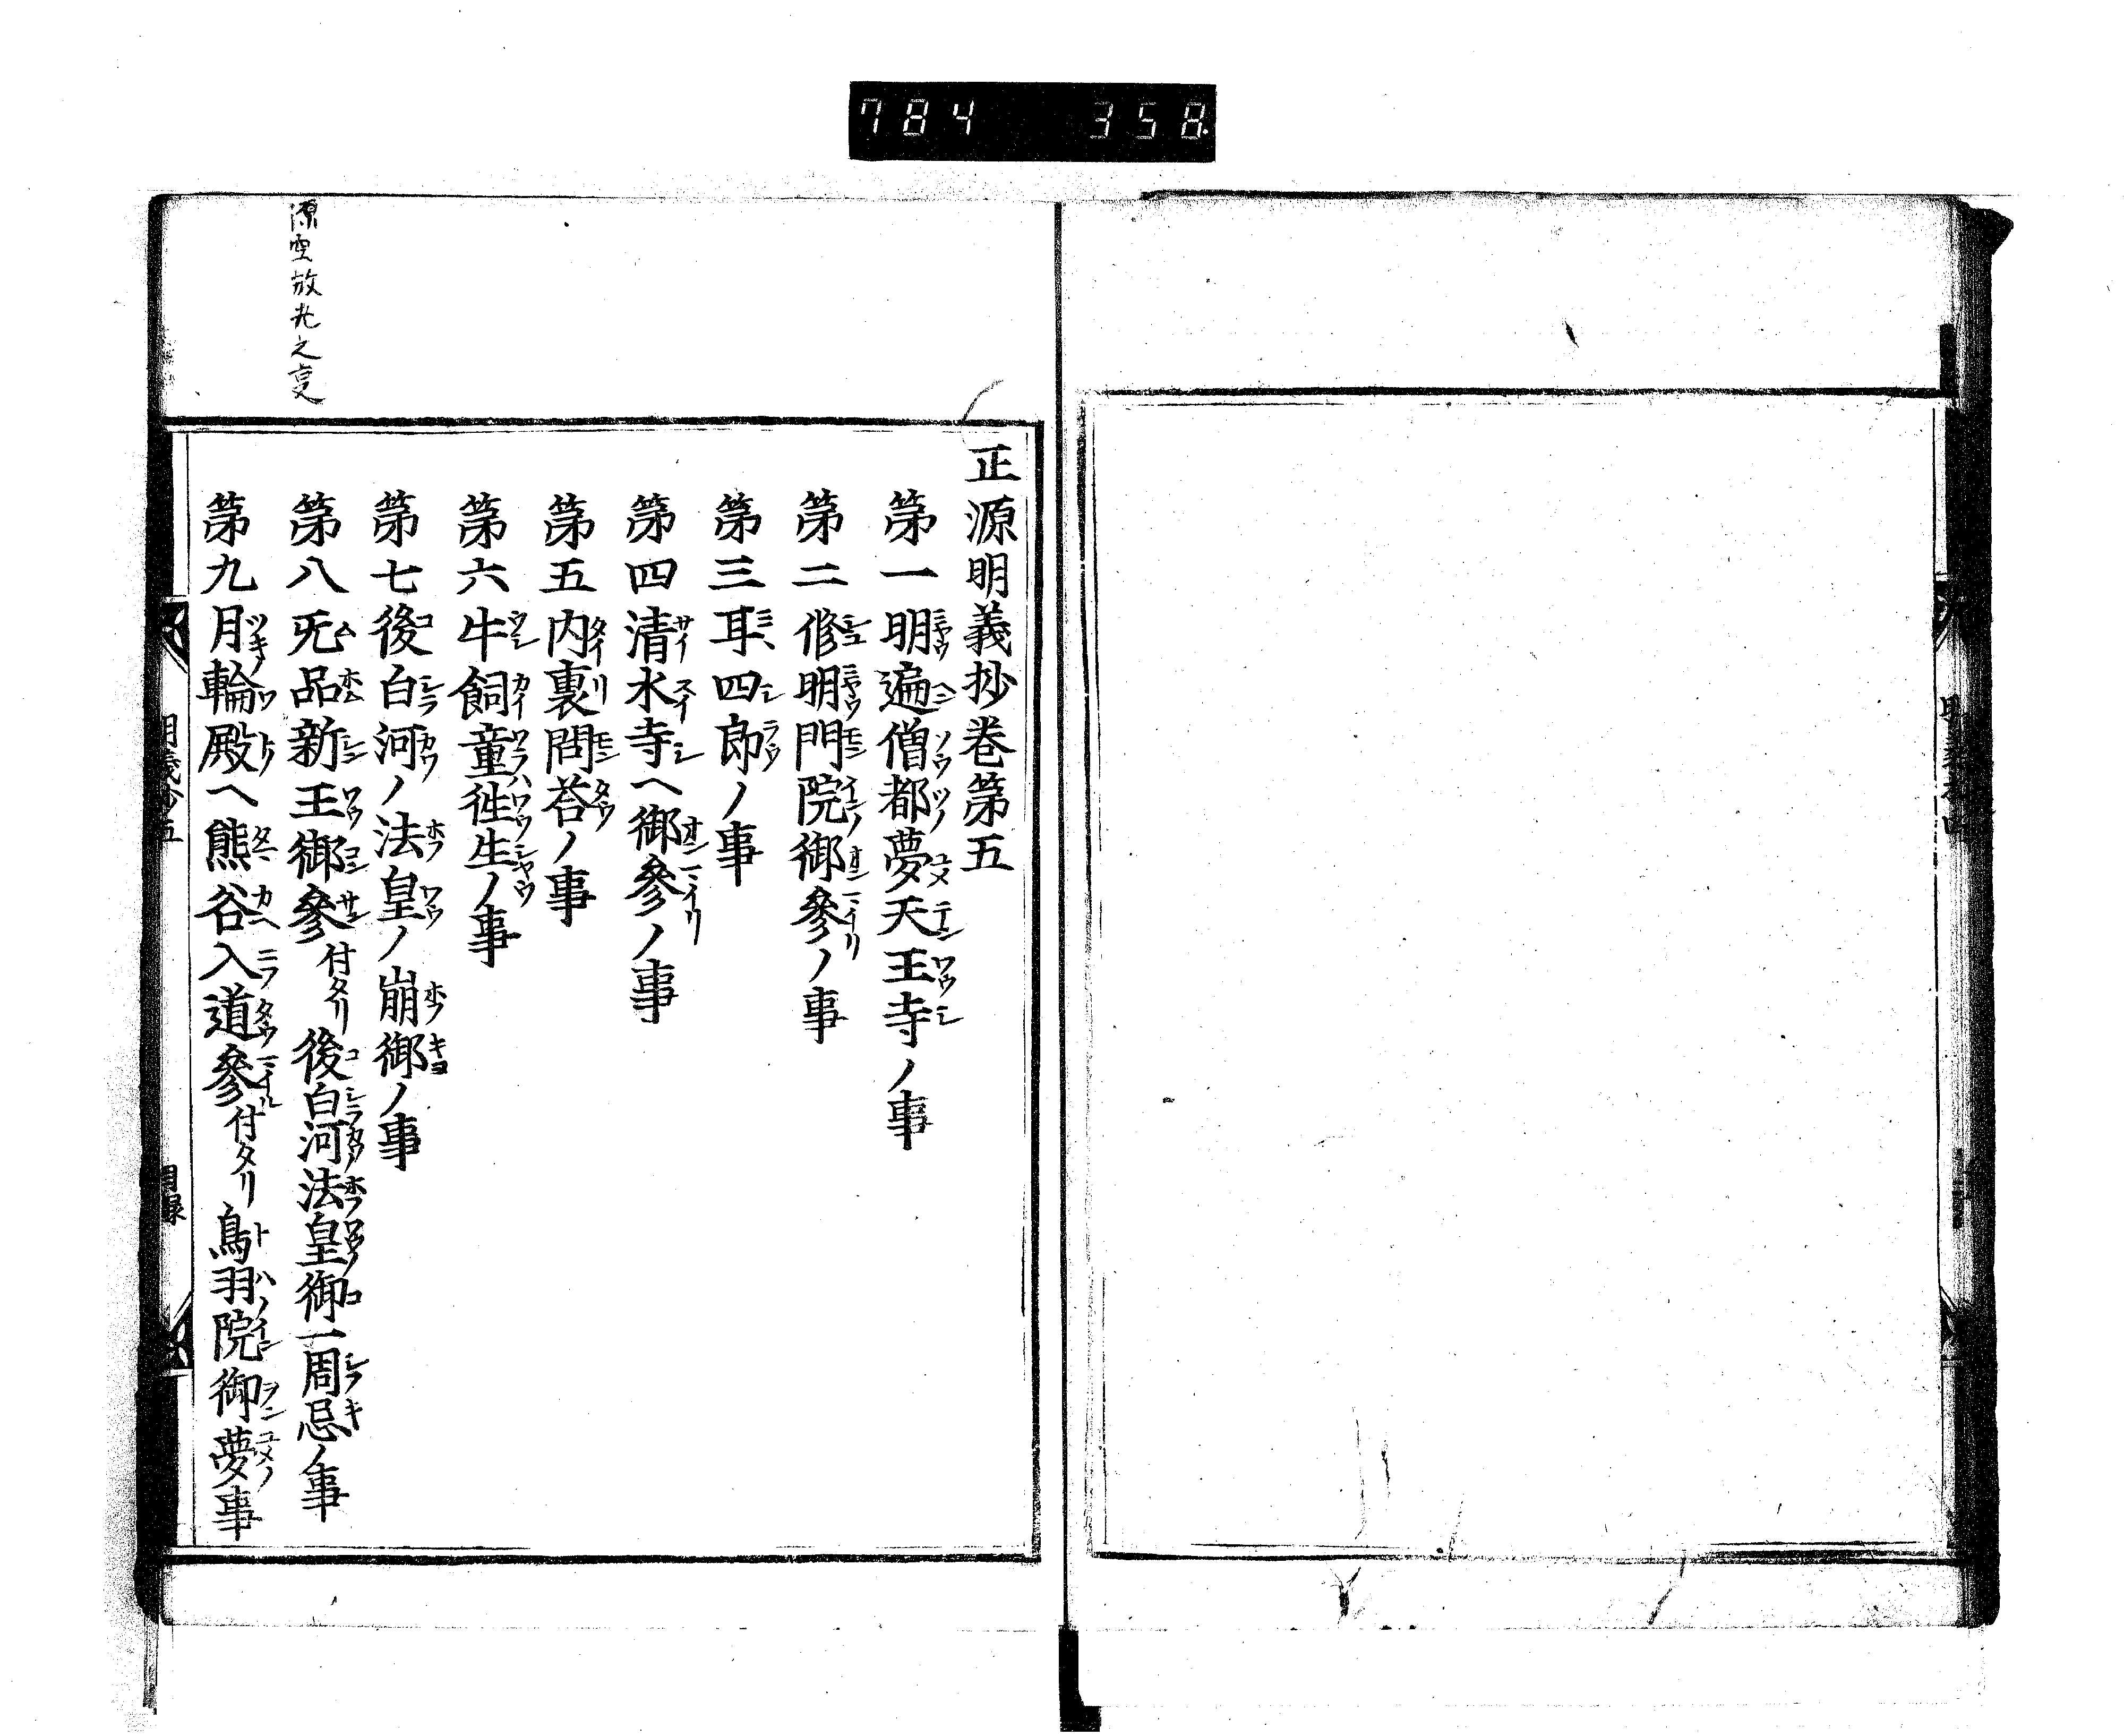 784 358
正源明義抄卷第五
第一明遍僧都夢天王寺ノ事
第二修明門院御參ノ事
第三耳四郎ノ事
第四清水寺ヘ御參ノ事
第五内裏問荅ノ事
第六牛飼童徃生ノ事
第七後白河ノ法皇ノ崩御ノ事
第八无品新王御參付タリ後白河法皇御一周忌ノ事
第九月輪殿ヘ熊谷入道參付タリ鳥羽院御夢事
源空放光之叓
明義抄五 目録